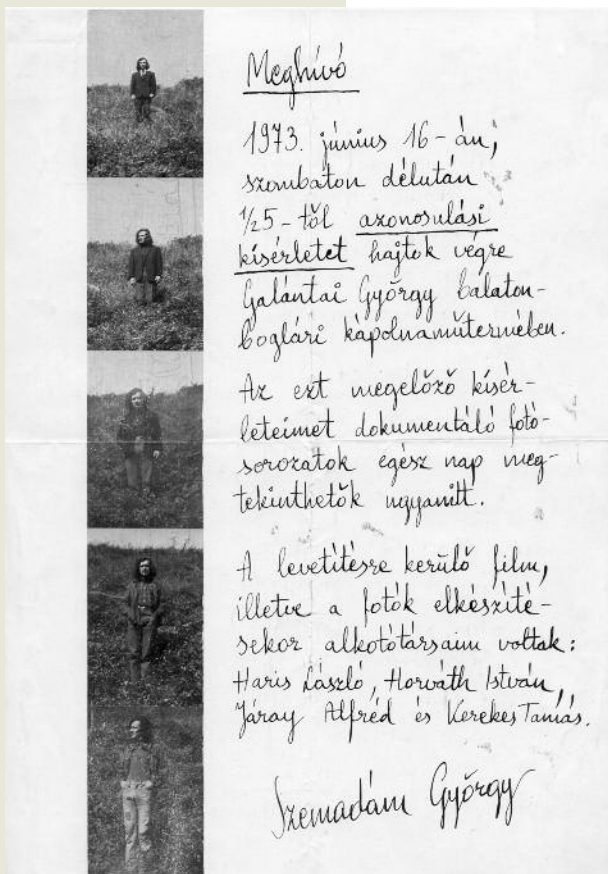 Meghívó
1973. június 16-án,
szombaton délután
1/2 5-től azonosulási
kísérletet hajtok végre
Galántai György balaton-
boglári kápolnaműtermében.
Az ezt megelőző kísér-
leteimet dokumentáló fotó-
sorozatok egész nap meg-
tekinthetők ugyanitt.
A levetítésre kerülő film,
illetve a fotók elkészíté-
sekor alkotótársaim voltak:
Haris László, Horváth István,
Járay Alfréd és Kerekes Tamás.
Szemadám György